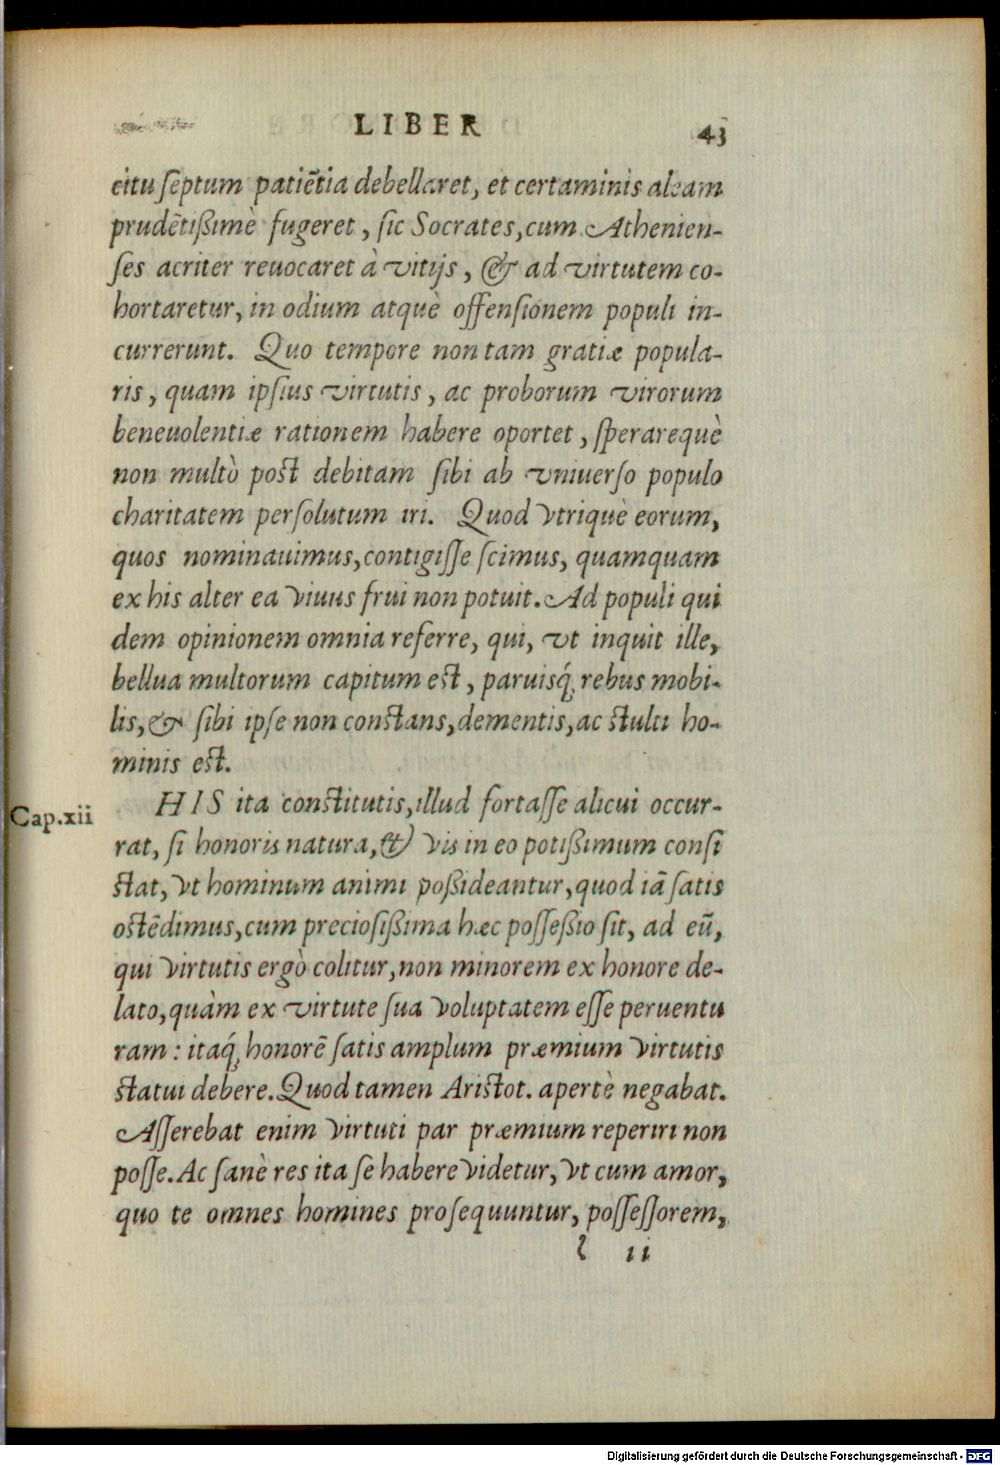 LIBER 43
citu septum patiẽtia debellaret, et certaminis aleam
prudẽtißimè fugeret, sic Socrates, cum Athenien-
ses acriter reuocaret à vitijs, & ad virtutem co-
hortaretur, in odium atquè offensionem populi in-
currerunt. Quo tempore non tam gratiæ popula-
ris, quam ipsius virtutis, ac proborum virorum
beneuolentiæ rationem habere oportet, sperarequè
non multò post debitam sibi ab vniuerso populo
charitatem persolutum iri. Quod vtriquè eorum,
quos nominauimus, contigisse scimus, quamquam
ex his alter ea viuus frui non potuit. Ad populi qui
dem opinionem omnia referre, qui, vt inquit ille,
bellua multorum capitum est, paruisq́; rebus mobi-
lis, & sibi ipse non constans, dementis, ac stulti ho-
minis est.
Cap.xii
HIS ita constitutis, illud fortasse alicui occur-
rat, si honoris natura, & vis in eo potißimum consi
stat, vt hominum animi poßideantur, quod iã satis
ostẽdimus, cum preciosißima hæc posseßio sit, ad eũ,
qui virtutis ergò colitur, non minorem ex honore de-
lato, quàm ex virtute sua voluptatem esse peruentu
ram: itaq́; honorẽ satis amplum præmium virtutis
statui debere. Quod tamen Aristot. apertè negabat.
Asserebat enim virtuti par præmium reperiri non
posse. Ac sanè res ita se habere videtur, vt cum amor,
quo te omnes homines prosequuntur, possessorem,
l ii
Digitalisierung gefördert durch die Deutsche Forschungsgemeinschaft - DFG